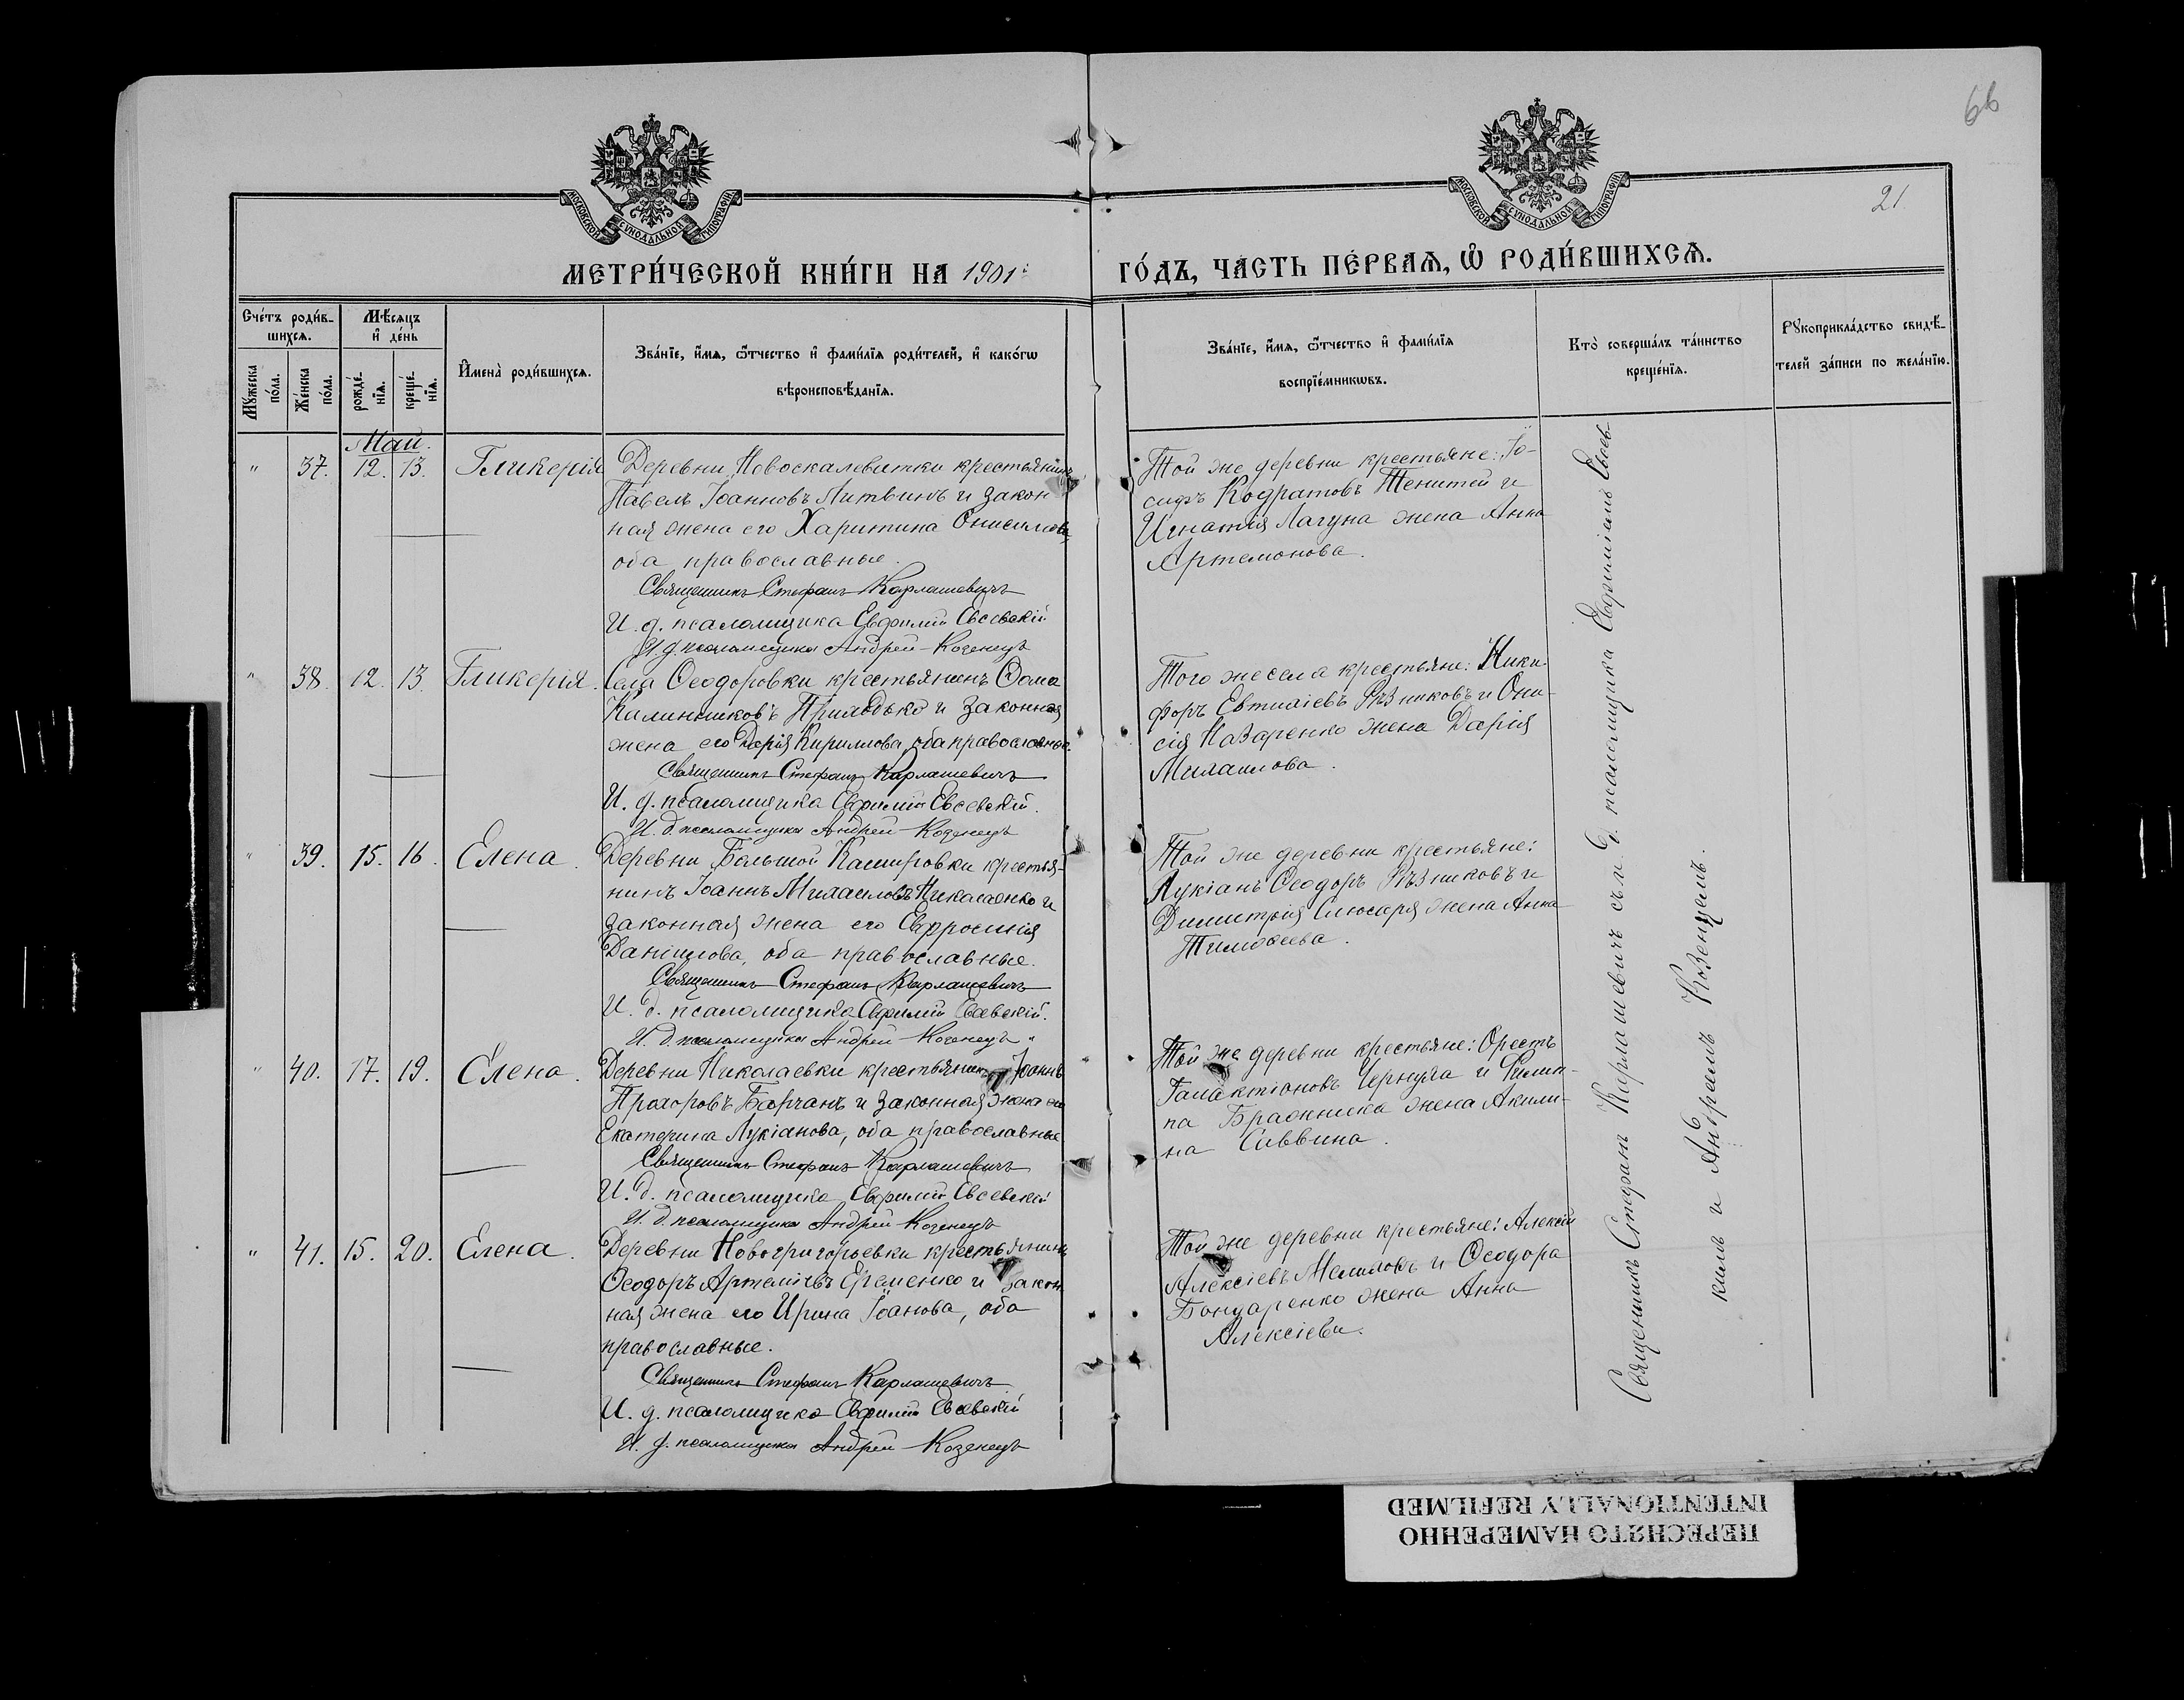 66
21
МОСКОВСКОЙ СѴНОДАЛЬНОЙ ТИПОГРАФІИ
МОСКОВСКОЙ СѴНОДАЛЬНОЙ ТИПОГРАФІИ
МЕТРИ́ЧЕСКОЙ КНИ́ГИ НА 1901й
ГО́ДЪ, ЧА́СТЬ ПЕ́РВАѦ, Ѡ РОДИ́ВШИХСѦ.
Сче́тъ роди́в-
шихсѧ.
Мꙋ́жеска по́ла.
Же́нска по́ла.
Мѣ́сѧцъ
и де́нь
рожде́-
нїѧ.
креще́-
нїѧ.
И҆мена̀ роди́вшихсѧ.
Зва́нїе, и҆́мѧ, ѻ҆́тчество и҆ фами́лїѧ роди́телей, и҆ како́гѡ
вѣроисповѣ́данїѧ.
Зва́нїе, и҆́мѧ, ѻ҆́тчество и҆ фами́лїѧ
воспрїе́мникѡвъ.
Кто̀ соверша́лъ та́инство
креще́нїѧ.
Рꙋкоприкла́дство свидѣ́-
телей за́писи по жела́нїю.
Май.
" 37. 12. 13. Гликерія
Деревни Новоскалеватки крестьянинъ
Павелъ Іоанновъ Литвинъ и закон
ная жена его Харитина Онисимова,
оба православные.
Священникъ Стефанъ Карлашевичъ
И. д. псаломщика Евфимій Евсевскій
И. д. псаломщика Андрей Козенецъ
Той же деревни крестьяне: Іо-
сифъ Кодратовъ и
Игнатія Лагуна жена Анна
Артемонова.
" 38. 12. 13. Гликерія.
Села Ѳеодоровки крестьянинъ Ѳома
Калинниковъ Приходько и законная
жена его Дарія Кириллова, оба православные.
Священникъ Стефанъ Карлашевичъ
И. д. псаломщика Евфимій Евсевскій.
И. д. псаломщика Андрей Козенецъ
Того же села крестьяне: Ники-
форъ Евтихіевъ Рѣзниковъ и Они-
сія Назаренко жена Дарія
Михаилова.
" 39. 15. 16. Елена.
Деревни Большой Кашировки крестья-
нинъ Іоаннъ Михаиловъ Николаенко и
законная жена его Евфросинія
Даніилова, оба православные.
Священникъ Стефанъ Карлашевичъ
И. д. псаломщика Евфимій Евсевскій.
И. д. псаломщика Андрей Козенецъ
Той же деревни крестьяне:
Лукіанъ Ѳеодоръ Рѣзниковъ и
Димитрія Слюсаря жена Анна
Тимоѳеева.
" 40. 17. 19. Елена.
Деревни Николаевки крестьянинъ Іоаннъ
Прохоровъ Барчанъ и законная жена его
Екатерина Лукіанова, оба православные
Священникъ Стефанъ Карлашевичъ
И. д. псаломщика Евфимій Евсевскій
И. д. псаломщика Андрей Козенецъ
Той же деревни крестьяне: Орестъ
Галактіоновъ Чернуха и Филип-
па жена Акили-
на Саввина.
" 41. 15. 20. Елена.
Деревни Новогригорьевки крестьянинъ
Ѳеодоръ Артеміевъ Еременко и закон
ная жена его Ирина Іоанова, оба
православные.
Священникъ Стефанъ Карлашевичъ
И. д. псаломщика Евфимій Евсевскій
И. д. псаломщика Андрей Козенецъ
Той же деревни крестьяне: Алексій
Алексіевъ и Ѳеодора
Бондаренко жена Анна
Алексіева.
Священникъ Стефанъ Карлашевичъ съ и. д. псаломщика Евфиміемъ Евсев-
кимъ и Андреемъ Козенцемъ.
ПЕРЕСНЯТО НАМЕРЕННО
INTENTIONALLY REFILMED